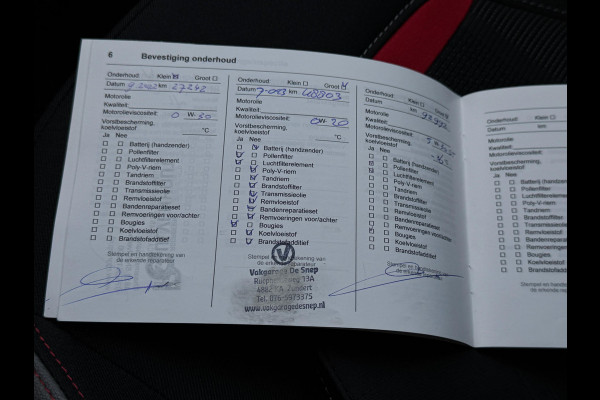 6 Bevestiging onderhoud
Onderhoud: Klein Groot
Datum km 27242
Motorolie
Kwaliteit:
Motorolieviscositeit: 0 W-30
Vorstbescherming, koelvloeistof °C
Ja Nee
Batterij (handzender)
Pollenfilter
Luchtfilterelement
Poly-V-riem
Tandriem
Brandstoffilter
Transmissieolie
Remvloeistof
Bandenreparatieset
Remvoeringen voor/achter
Bougies
Koelvloeistof
Brandstofadditief
Stempel en handtekening van
de erkende reparateur
Onderhoud: Klein Groot
Datum km 48803
Motorolie
Kwaliteit:
Motorolieviscositeit: 0W-30
Vorstbescherming,
koelvloeistof °C
Ja Nee
Batterij (handzender)
Pollenfilter
Luchtfilterelement
Poly-V-riem
Tandriem
Brandstoffilter
Transmissieolie
Remvloeistof
Bandenreparatieset
Remvoeringen voor/achter
Bougies
Koelvloeistof
Brandstofadditief
Stempel en handtekening van
de erkende reparateur
Vakgarage De Snep
Zundert
Tel. 076-5973375
www.vakgaragedesnep.nl
Onderhoud: Klein Groot
Datum km
Motorolie
Kwaliteit:
Motorolieviscositeit:
Vorstbescherming,
koelvloeistof
Ja Nee
Batterij (handzender)
Pollenfilter
Luchtfilterelement
Poly-V-riem
Tandriem
Brandstoffilter
Transmissieolie
Remvloeistof
Bandenreparatieset
Remvoeringen voor/achter
Bougies
Koelvloeistof
Brandstofadditief
Stempel en handtekening van
de erkende reparateur
Onderhoud: Klein
Datum km
Motorolie
Kwaliteit:
Motorolieviscositeit:
Vorstbescherming,
koelvloeistof
Ja Nee
Batterij (handze
Pollenfilter
Luchtfilterelement
Poly-V-riem
Tandriem
Brandstoffilter
Transmissieolie
Remvloeistof
Bandenreparatieset
Remvoeringen
Bougies
Koelvloeistof
Brandstofadditief
Stempel en handtekening
de erkende